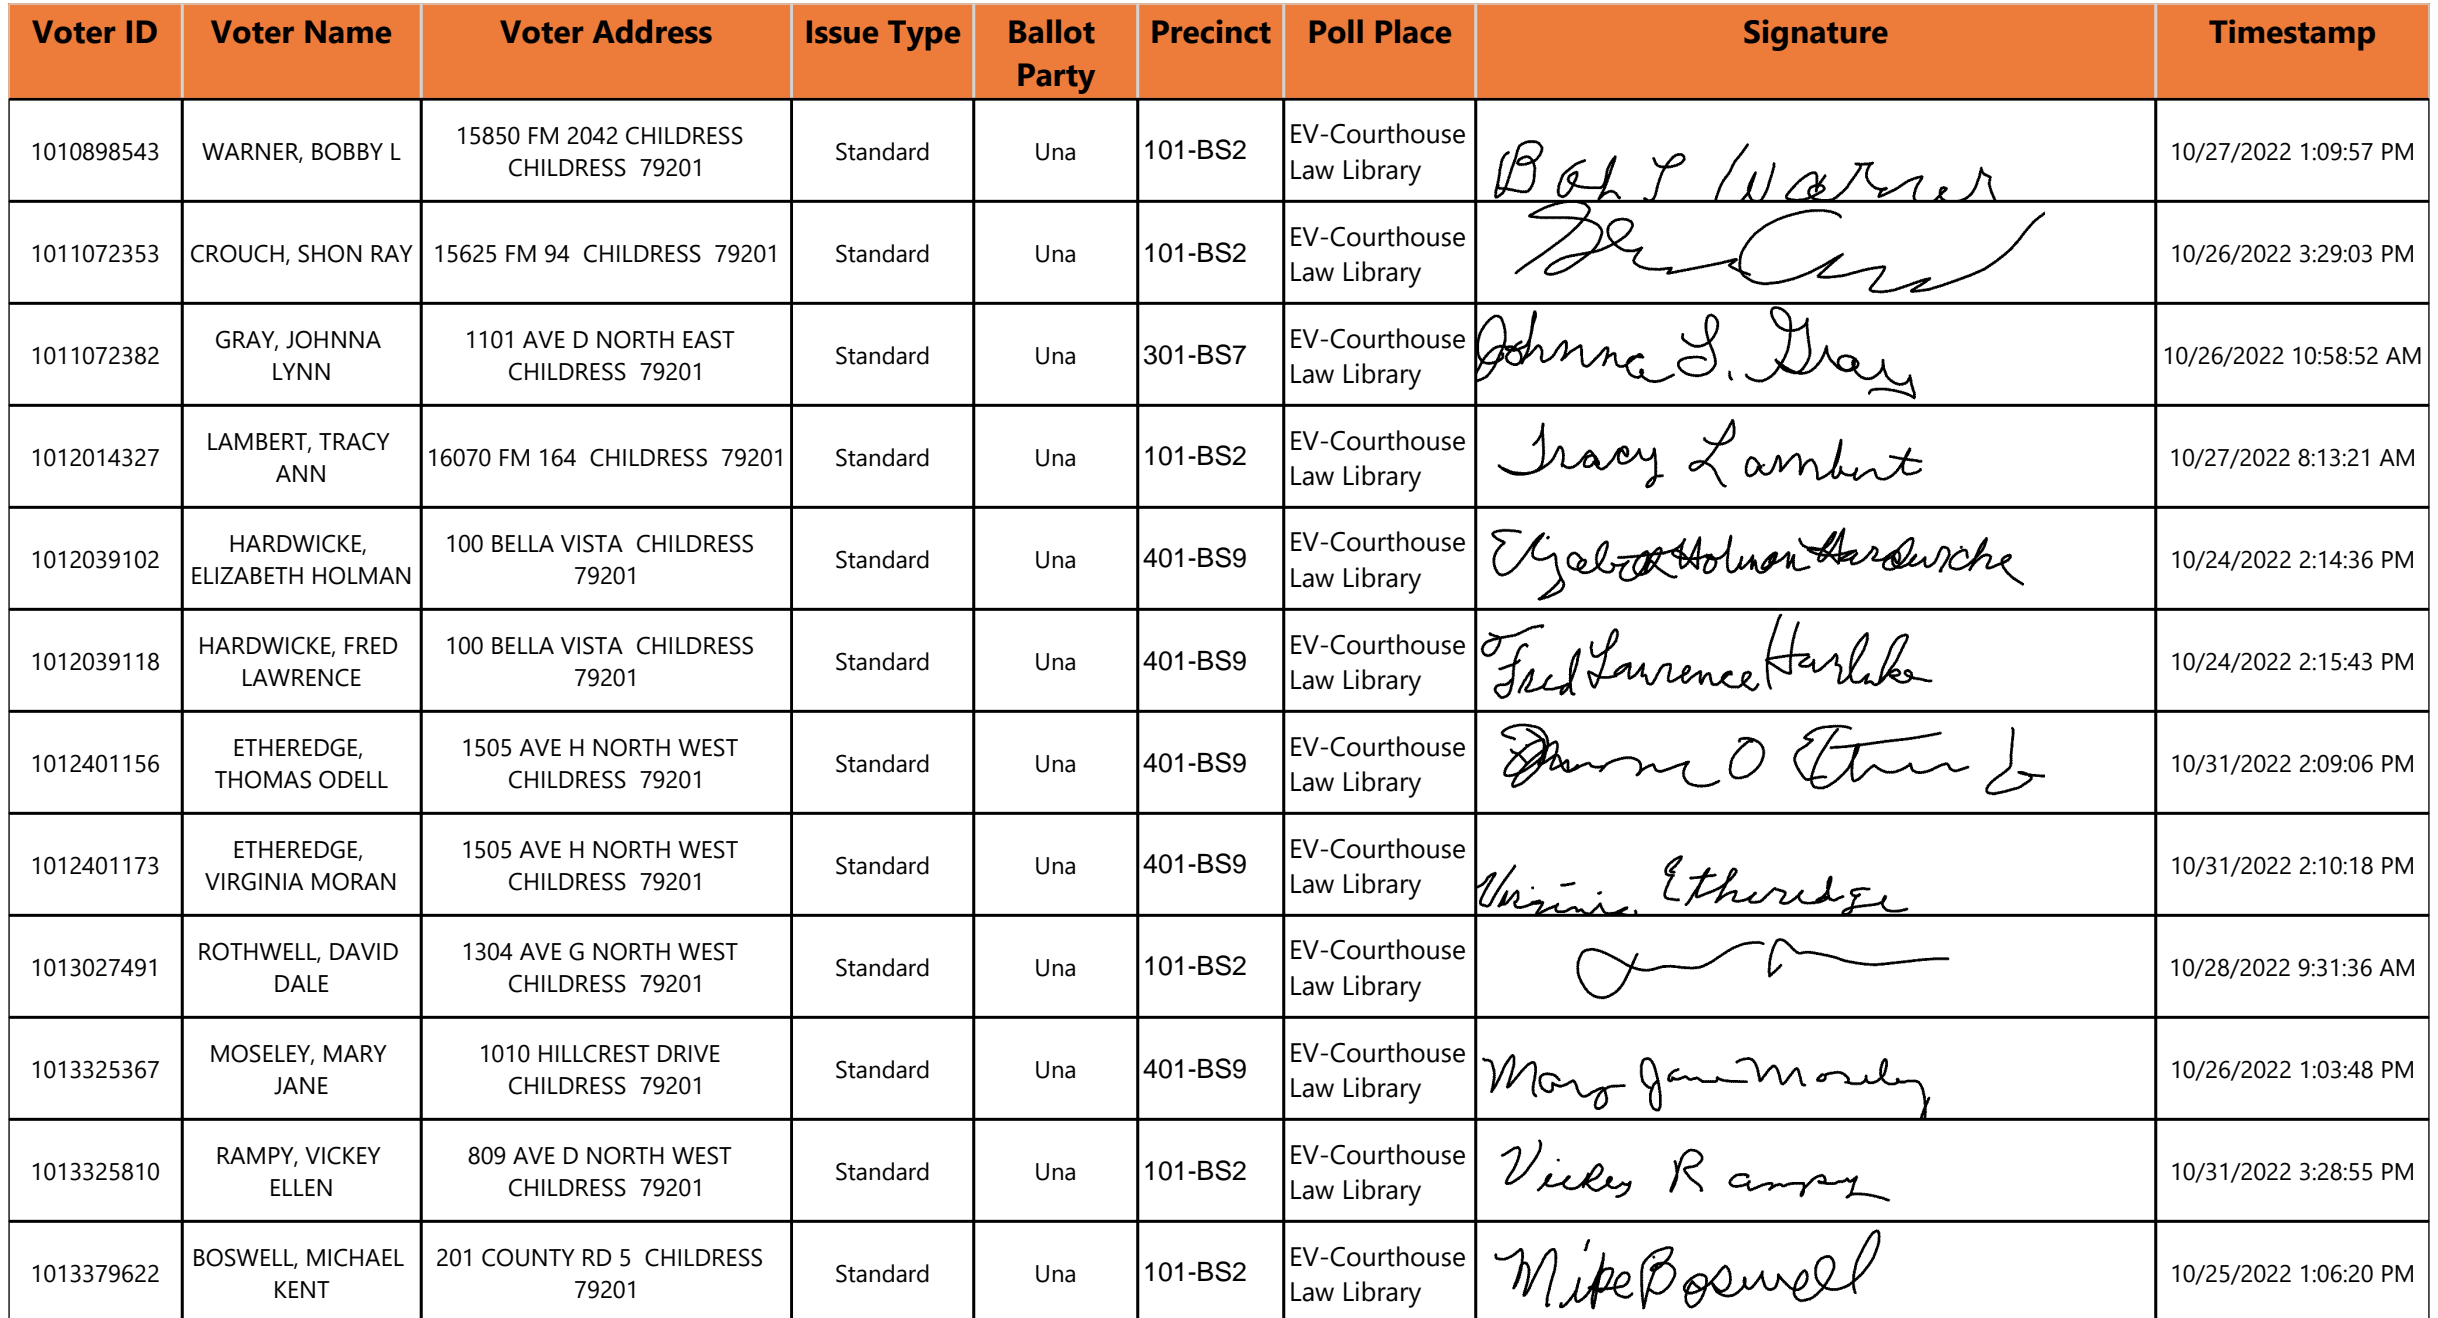 Voter ID Voter Name Voter Address Issue Type Ballot Party Precinct Poll Place Signature Timestamp
1010898543 WARNER, BOBBY L 15850 FM 2042 CHILDRESS CHILDRESS 79201 Standard Una 101-BS2 EV-Courthouse Law Library Bob L Warner 10/27/2022 1:09:57 PM
1011072353 CROUCH, SHON RAY 15625 FM 94 CHILDRESS 79201 Standard Una 101-BS2 EV-Courthouse Law Library 10/26/2022 3:29:03 PM
1011072382 GRAY, JOHNNA LYNN 1101 AVE D NORTH EAST CHILDRESS 79201 Standard Una 301-BS7 EV-Courthouse Law Library Johnna L. Gray 10/26/2022 10:58:52 AM
1012014327 LAMBERT, TRACY ANN 16070 FM 164 CHILDRESS 79201 Standard Una 101-BS2 EV-Courthouse Law Library Tracy Lambert 10/27/2022 8:13:21 AM
1012039102 HARDWICKE, ELIZABETH HOLMAN 100 BELLA VISTA CHILDRESS 79201 Standard Una 401-BS9 EV-Courthouse Law Library Elizabeth Holman Hardwicke 10/24/2022 2:14:36 PM
1012039118 HARDWICKE, FRED LAWRENCE 100 BELLA VISTA CHILDRESS 79201 Standard Una 401-BS9 EV-Courthouse Law Library Fred Lawrence 10/24/2022 2:15:43 PM
1012401156 ETHEREDGE, THOMAS ODELL 1505 AVE H NORTH WEST CHILDRESS 79201 Standard Una 401-BS9 EV-Courthouse Law Library 10/31/2022 2:09:06 PM
1012401173 ETHEREDGE, VIRGINIA MORAN 1505 AVE H NORTH WEST CHILDRESS 79201 Standard Una 401-BS9 EV-Courthouse Law Library Virginia Etheredge 10/31/2022 2:10:18 PM
1013027491 ROTHWELL, DAVID DALE 1304 AVE G NORTH WEST CHILDRESS 79201 Standard Una 101-BS2 EV-Courthouse Law Library 10/28/2022 9:31:36 AM
1013325367 MOSELEY, MARY JANE 1010 HILLCREST DRIVE CHILDRESS 79201 Standard Una 401-BS9 EV-Courthouse Law Library Mary Jane Moseley 10/26/2022 1:03:48 PM
1013325810 RAMPY, VICKEY ELLEN 809 AVE D NORTH WEST CHILDRESS 79201 Standard Una 101-BS2 EV-Courthouse Law Library Vickey Rampy 10/31/2022 3:28:55 PM
1013379622 BOSWELL, MICHAEL KENT 201 COUNTY RD 5 CHILDRESS 79201 Standard Una 101-BS2 EV-Courthouse Law Library Mike Boswell 10/25/2022 1:06:20 PM